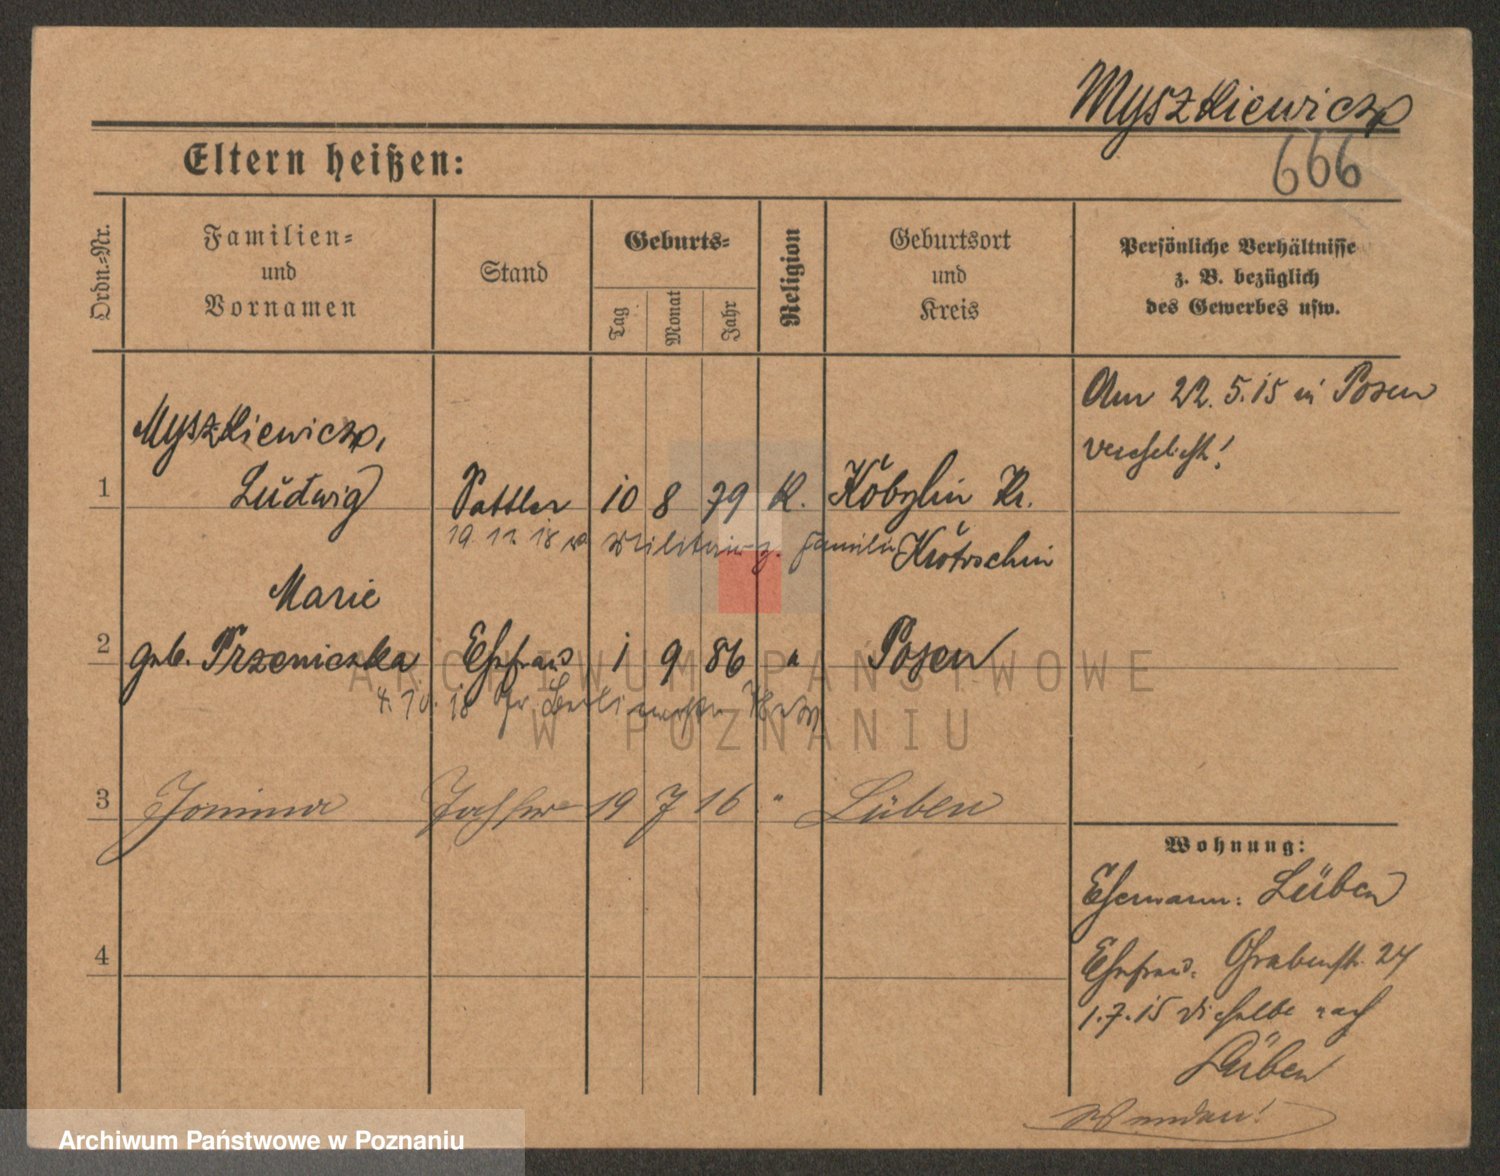 Myszkiewicz
666
Eltern heißen:
Ordn.-Nr.
Familien-
und
Vornamen
Stand
Geburts-
Tag
Monat
Jahr
Religion
Geburtsort
und
Kreis
Persönliche Verhältnisse
z. B. bezüglich
des Gewerbes usw.
Am 22.5.15 in Posen
verehelicht!
Myszkiewicz,
1 Ludwig Sattler 10 8 79 K. Kobylin Kr.
19 18 Militär z. Familie Krotoschin
Marie
2 geb. Przeniczka Ehefrau 1 9 86 " Posen
4. 10. 18
3 Tochter 19 7 16 " Lüben
4
Wohnung:
Ehemann: Lüben
Ehefrau: Grabenstr. 24
1.7.15 dieselbe nach
Lüben
Wenden!
ARCHIWUM PAŃSTWOWE
W POZNANIU
Archiwum Państwowe w Poznaniu